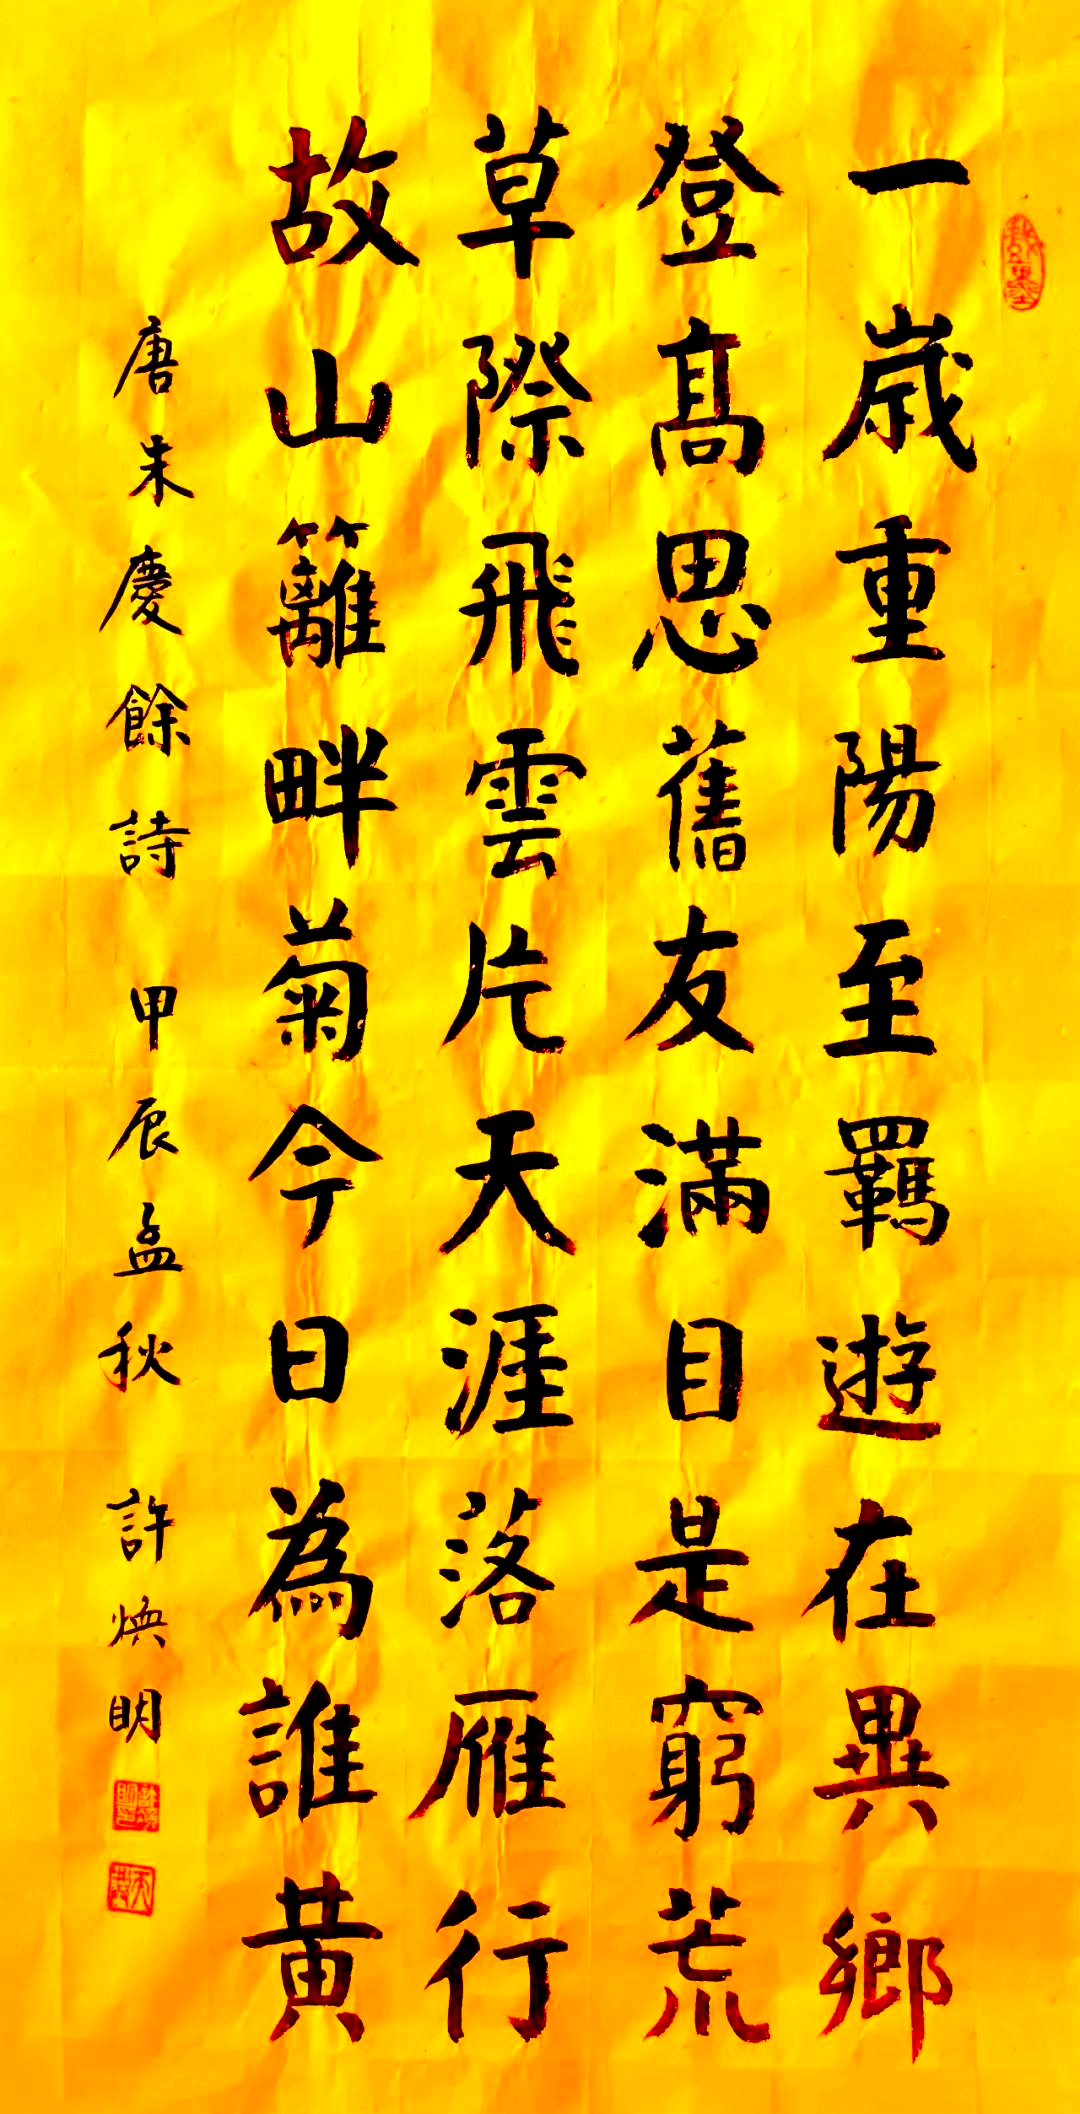 一歲重陽至羈遊在異鄉
登髙思舊友滿目是窮荒
草際飛雲片天涯落雁行
故山籬畔菊今日為誰黄
唐朱慶餘詩 甲辰孟秋 許煥明